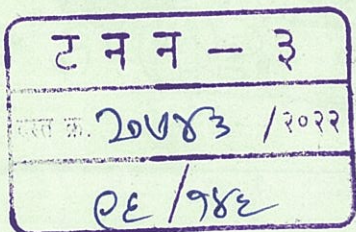 ट न न - ३
दस्त क्र. २०७४३ /२०२२
९६ /१४६